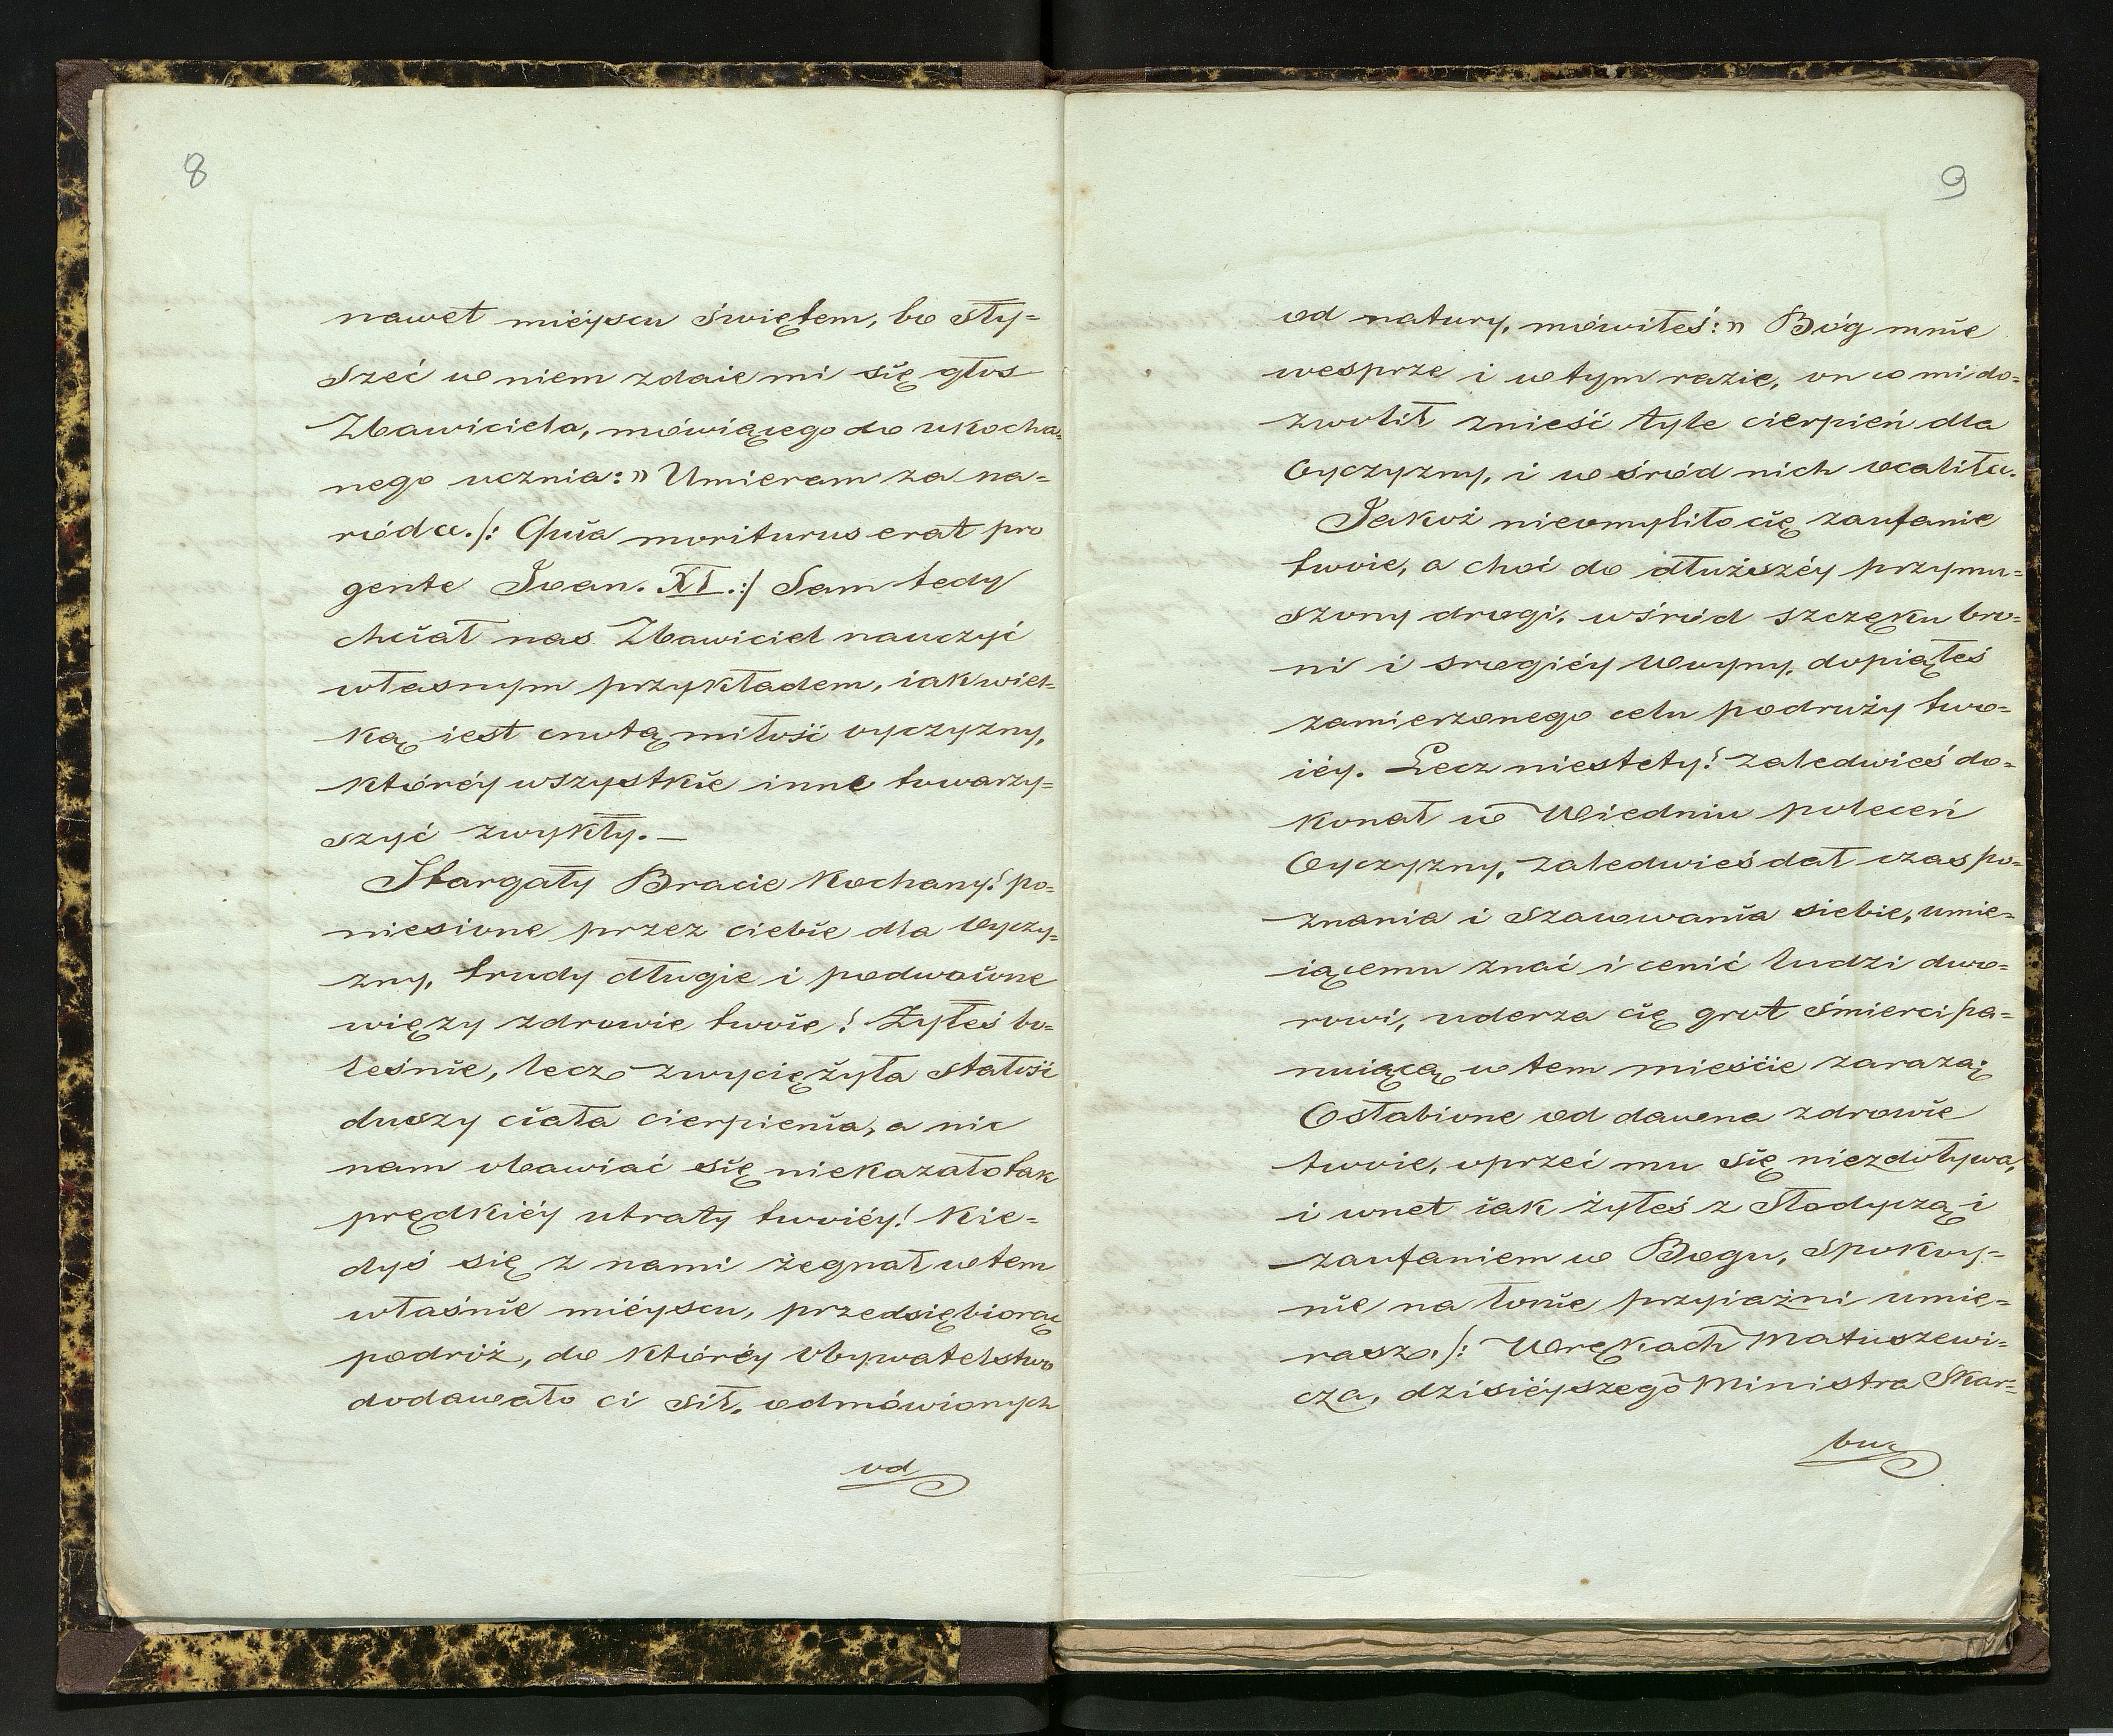 8
nawet mieyscu świętem, bo sły=
szeć w niem zdaie mi się głos
Zbawiciela, mówiącego do ukocha=
nego ucznia: „ Umieram za na=
ród a./: Quia moriturus erat pro
gente Joan. XI.:/ Sam tedy
chciał nas Zbawiciel nauczyć
własnym przykładem, iak wiel=
ką iest cnotą miłość oyczyzny,
któréy wszystkie inne towarzy=
szyć zwykły. —
Stargały Bracie Kochany! po=
niesione przez ciebie dla Oyczy=
zny, trudy długie i podwoóne
więzy zdrowie twoie! Żyłeś bo=
leśnie, lecz zwyciężyła stałość
duszy ciała cierpienia, a nic
nam obawiać się niekazało tak
prędkiéy utraty twoiéy! Kie=
dyś się z nami żegnał w tem
właśnie mieyscu, przedsiębiorąc
podróż, do któréy Obywatelstwo
dodawało ci sił, odmówionych
od
9
od natury, mówiłeś: „ Bóg mnie
wesprze i w tym razie, on co mi do=
zwolił znieść tyle cierpień dla
Oyczyzny, i w śród nich ocalił a.
Jakoż nieomyliło cię zaufanie
twoie, a choć do dłuższéy przymu=
szony drogi, wśród szczęku bro=
ni i srogiéy Woyny, dopiąłeś
zamierzonego celu podróży two=
iéy. Lecz niestety! zaledwieś do=
konał w Wiedniu poleceń
Oyczyzny, zaledwieś dał czas po=
znania i szacowania siebie, umie=
iącemu znać i cenić ludzi dwo=
rowi, uderza cię grot śmierci pa=
nuiącą w tem mieście zarazą;
Osłabione od dawna zdrowie
twoie, oprzeć mu się niezdoływa,
i wnet iak żyłeś z Słodyczą i
zaufaniem w Bogu, spokoy=
nie na łonie przyiaźni umie=
rasz./: W rękach Matuszewi=
cza, dzisieyszego Ministra Skar=
bu